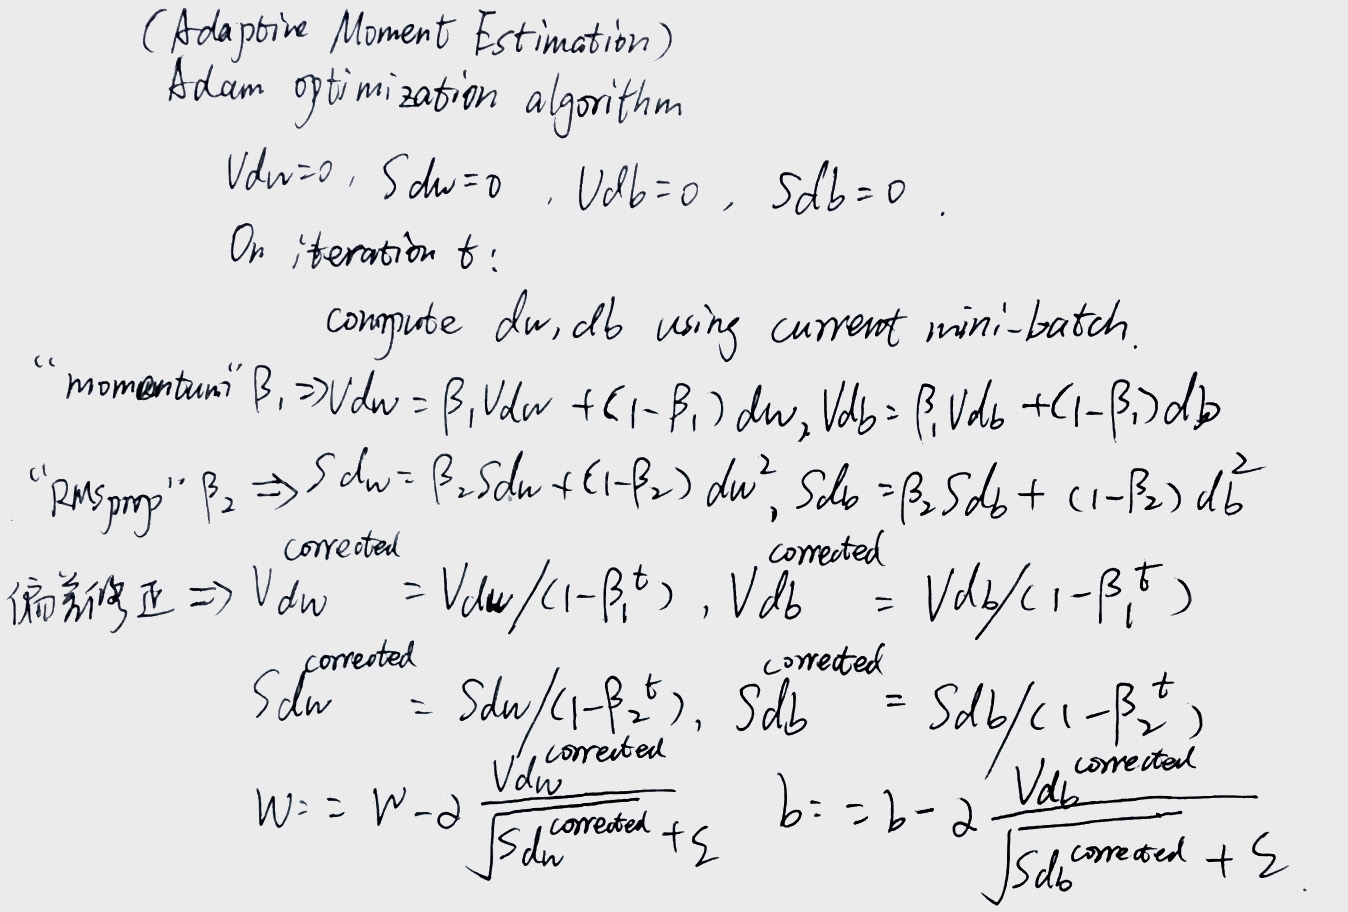 (Adaptive Moment Estimation)
Adam optimization algorithm
Vdw=0, Sdw=0, Vdb=0, Sdb=0.
On iteration t:
compute dw, db using current mini-batch.
"momentum" β₁ ⇒ Vdw = β₁Vdw + (1-β₁)dw, Vdb = β₁Vdb + (1-β₁)db
"RMSprop" β₂ ⇒ Sdw = β₂Sdw + (1-β₂)dw², Sdb = β₂Sdb + (1-β₂)db²
偏差修正 ⇒ Vdw^corrected = Vdw/(1-β₁^t), Vdb^corrected = Vdb/(1-β₁^t)
Sdw^corrected = Sdw/(1-β₂^t), Sdb^corrected = Sdb/(1-β₂^t)
W := W - α Vdw^corrected / (√(Sdw^corrected) + ε) b := b - α Vdb^corrected / (√(Sdb^corrected) + ε).